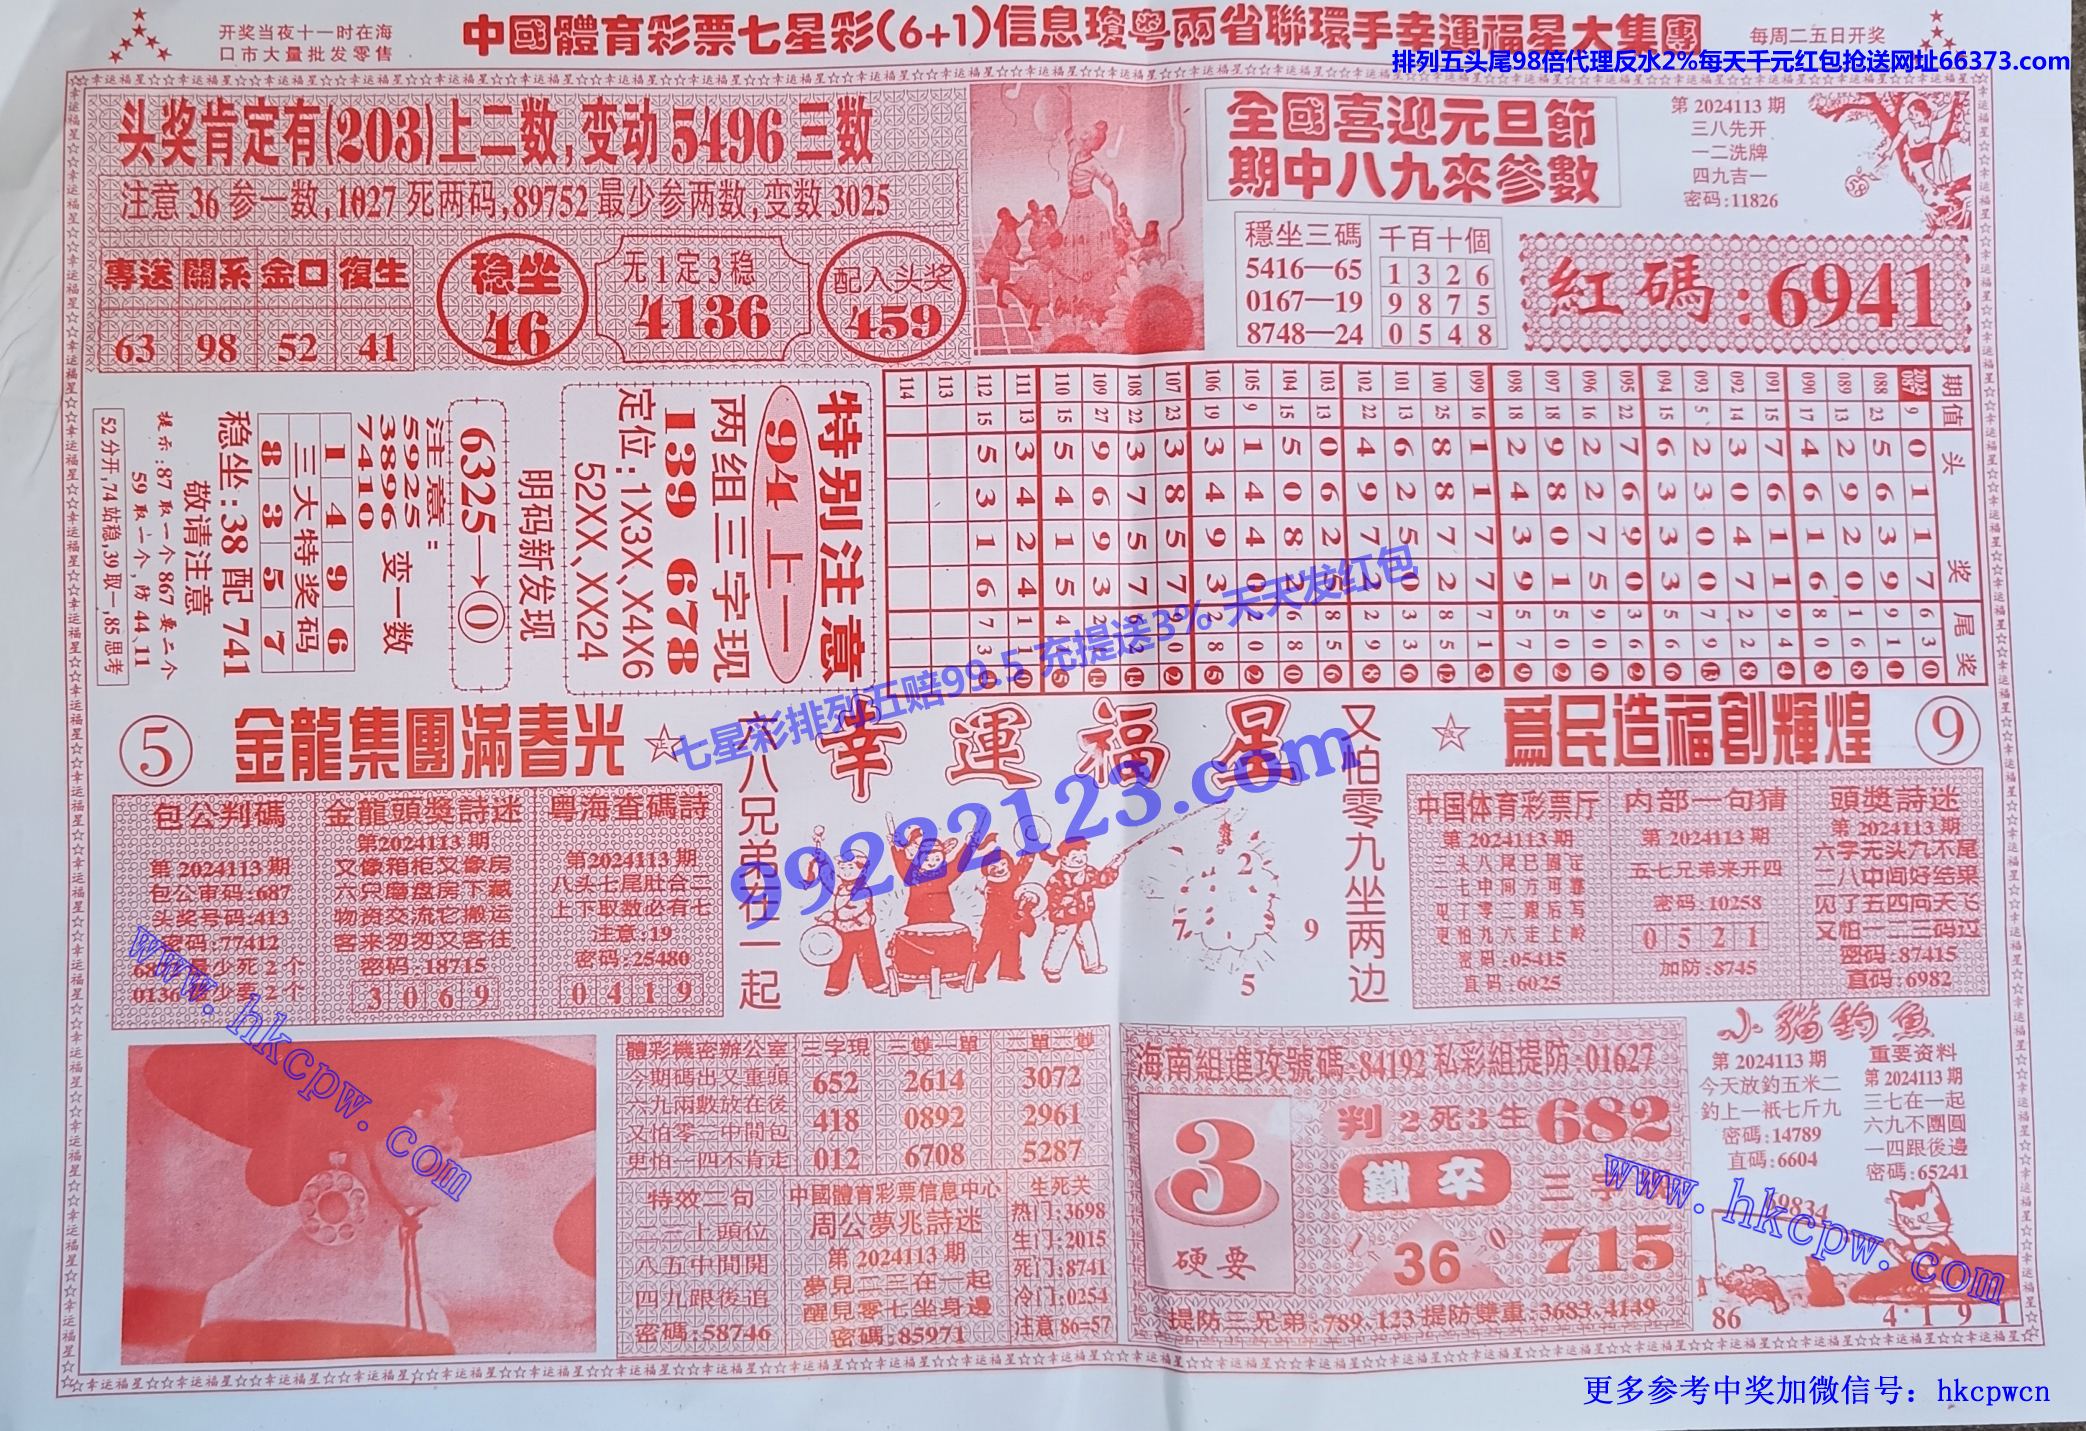 开奖当夜十一时在海
口市大量批发零售
中國體育彩票七星彩(6+1)信息瓊粵兩省聯環手幸運福星大集團
每周二五日开奖
排列五头尾98倍代理反水2%每天千元红包抢送网址66373.com
头奖肯定有(203)上二数,变动5496三数
注意36参一数,1027死两码,89752最少参两数,变数3025
專送 關系 金口 復生
63 98 52 41
稳坐
46
无1定3稳
4136
配入头奖
459
全國喜迎元旦節
期中八九來參數
第2024113期
三八先开
一二洗牌
四九吉一
密码:11826
穩坐三碼
5416—65
0167—19
8748—24
千百十個
1 3 2 6
9 8 7 5
0 5 4 8
紅碼:6941
期 值 头奖 尾奖
2024
087 9 0 1 1 7 6 3
088 23 5 6 3 9 9 1
089 13 2 9 2 0 1 6
090 17 4 6 1 6 8 0
091 15 7 6 1 1 9 4
092 14 3 0 4 7 2 2
093 5 2 3 0 0 7 9
094 15 6 3 3 3 5 6
095 22 7 6 9 0 3 6
096 16 2 2 7 5 9 0
097 18 9 8 0 1 5 0
098 18 2 4 3 9 5 7
099 16 1 1 7 7 7 1
100 25 8 8 7 2 8 5
101 13 6 2 5 0 3 3
102 22 4 9 7 2 2 9
103 13 0 6 2 5 8 5
104 15 5 0 8 2 6 8
105 9 1 4 4 0 2 0
106 19 3 4 9 3 2 8
107 23 3 8 5 7
108 22 3 7 5 7
109 27 9 6 9 3
110 15 5 4 1 5
111 13 3 4 2 4 1 1
112 15 5 3 1 6 7 3
113
114
特别注意
94上一
两组三字现
139 678
定位:1X3X、X4X6
52XX、XX24
明码新发现
6325→0
注意:
5925
3896 变一数
7410
1 4 9 6
三大特奖码
8 3 5 7
稳坐:38配741
敬请注意
提示:87取一个867要二个
59取一个,防44、11
52分开,74站稳,39取一,85思考
七星彩排列五赔99.5 充提送3% 天天发红包
99222123.com
5
金龍集團滿春光
六八兄弟在一起
幸運福星
又怕零九坐两边
爲民造福創輝煌
9
包公判碼
第2024113期
包公审码:687
头奖号码:413
密码:77412
最少死2个
0136 少要2个
金龍頭獎詩迷
第2024113期
又像箱柜又像房
六只磨盘房下藏
物资交流它搬运
客来匆匆又客往
密码:18715
3 0 6 9
粤海查碼詩
第2024113期
八头七尾肚合三
上下取数必有七
注意:19
密码:25480
0 4 1 9
2
7
9
5
中国体育彩票厅
第2024113期
三头八尾已固定
一七中间方可靠
见了零二跟后写
更怕九六走上岭
密码:05415
直码:6025
内部一句猜
第2024113期
五七兄弟来开四
密码:10258
0 5 2 1
加防:8745
頭獎詩迷
第2024113期
六字无头九不尾
二八中间好结果
见了五四向天飞
又怕一二三码过
密码:87415
直码:6982
www.hkcpw.com
體彩機密辦公室
今期碼出又重頭
六九兩數放在後
又怕零二中間包
更怕一四不肯走
三字現
652
418
012
三雙一單
2614
0892
6708
二單二雙
3072
2961
5287
特效二句
二三上頭位
八五中間開
四九跟後追
密碼:58746
中國體育彩票信息中心
周公夢兆詩迷
第2024113期
夢見二三在一起
醒見零七坐身邊
密碼:85971
生死关
热门:3698
生门:2015
死门:8741
冷门:0254
注意86=57
海南組進攻號碼:84192 私彩組提防:01627
3
硬要
判2死3生682
鐵卒
三字
1 36 0
715
提防三兄弟:789、123提防雙重:3683、4149
小貓釣魚
第2024113期
今天放釣五米二
釣上一衹七斤九
密碼:14789
直碼:6604
重要资料
第2024113期
三七在一起
六九不團圓
一四跟後邊
密碼:65241
9834
86
4191
www.hkcpw.com
更多参考中奖加微信号：hkcpwcn